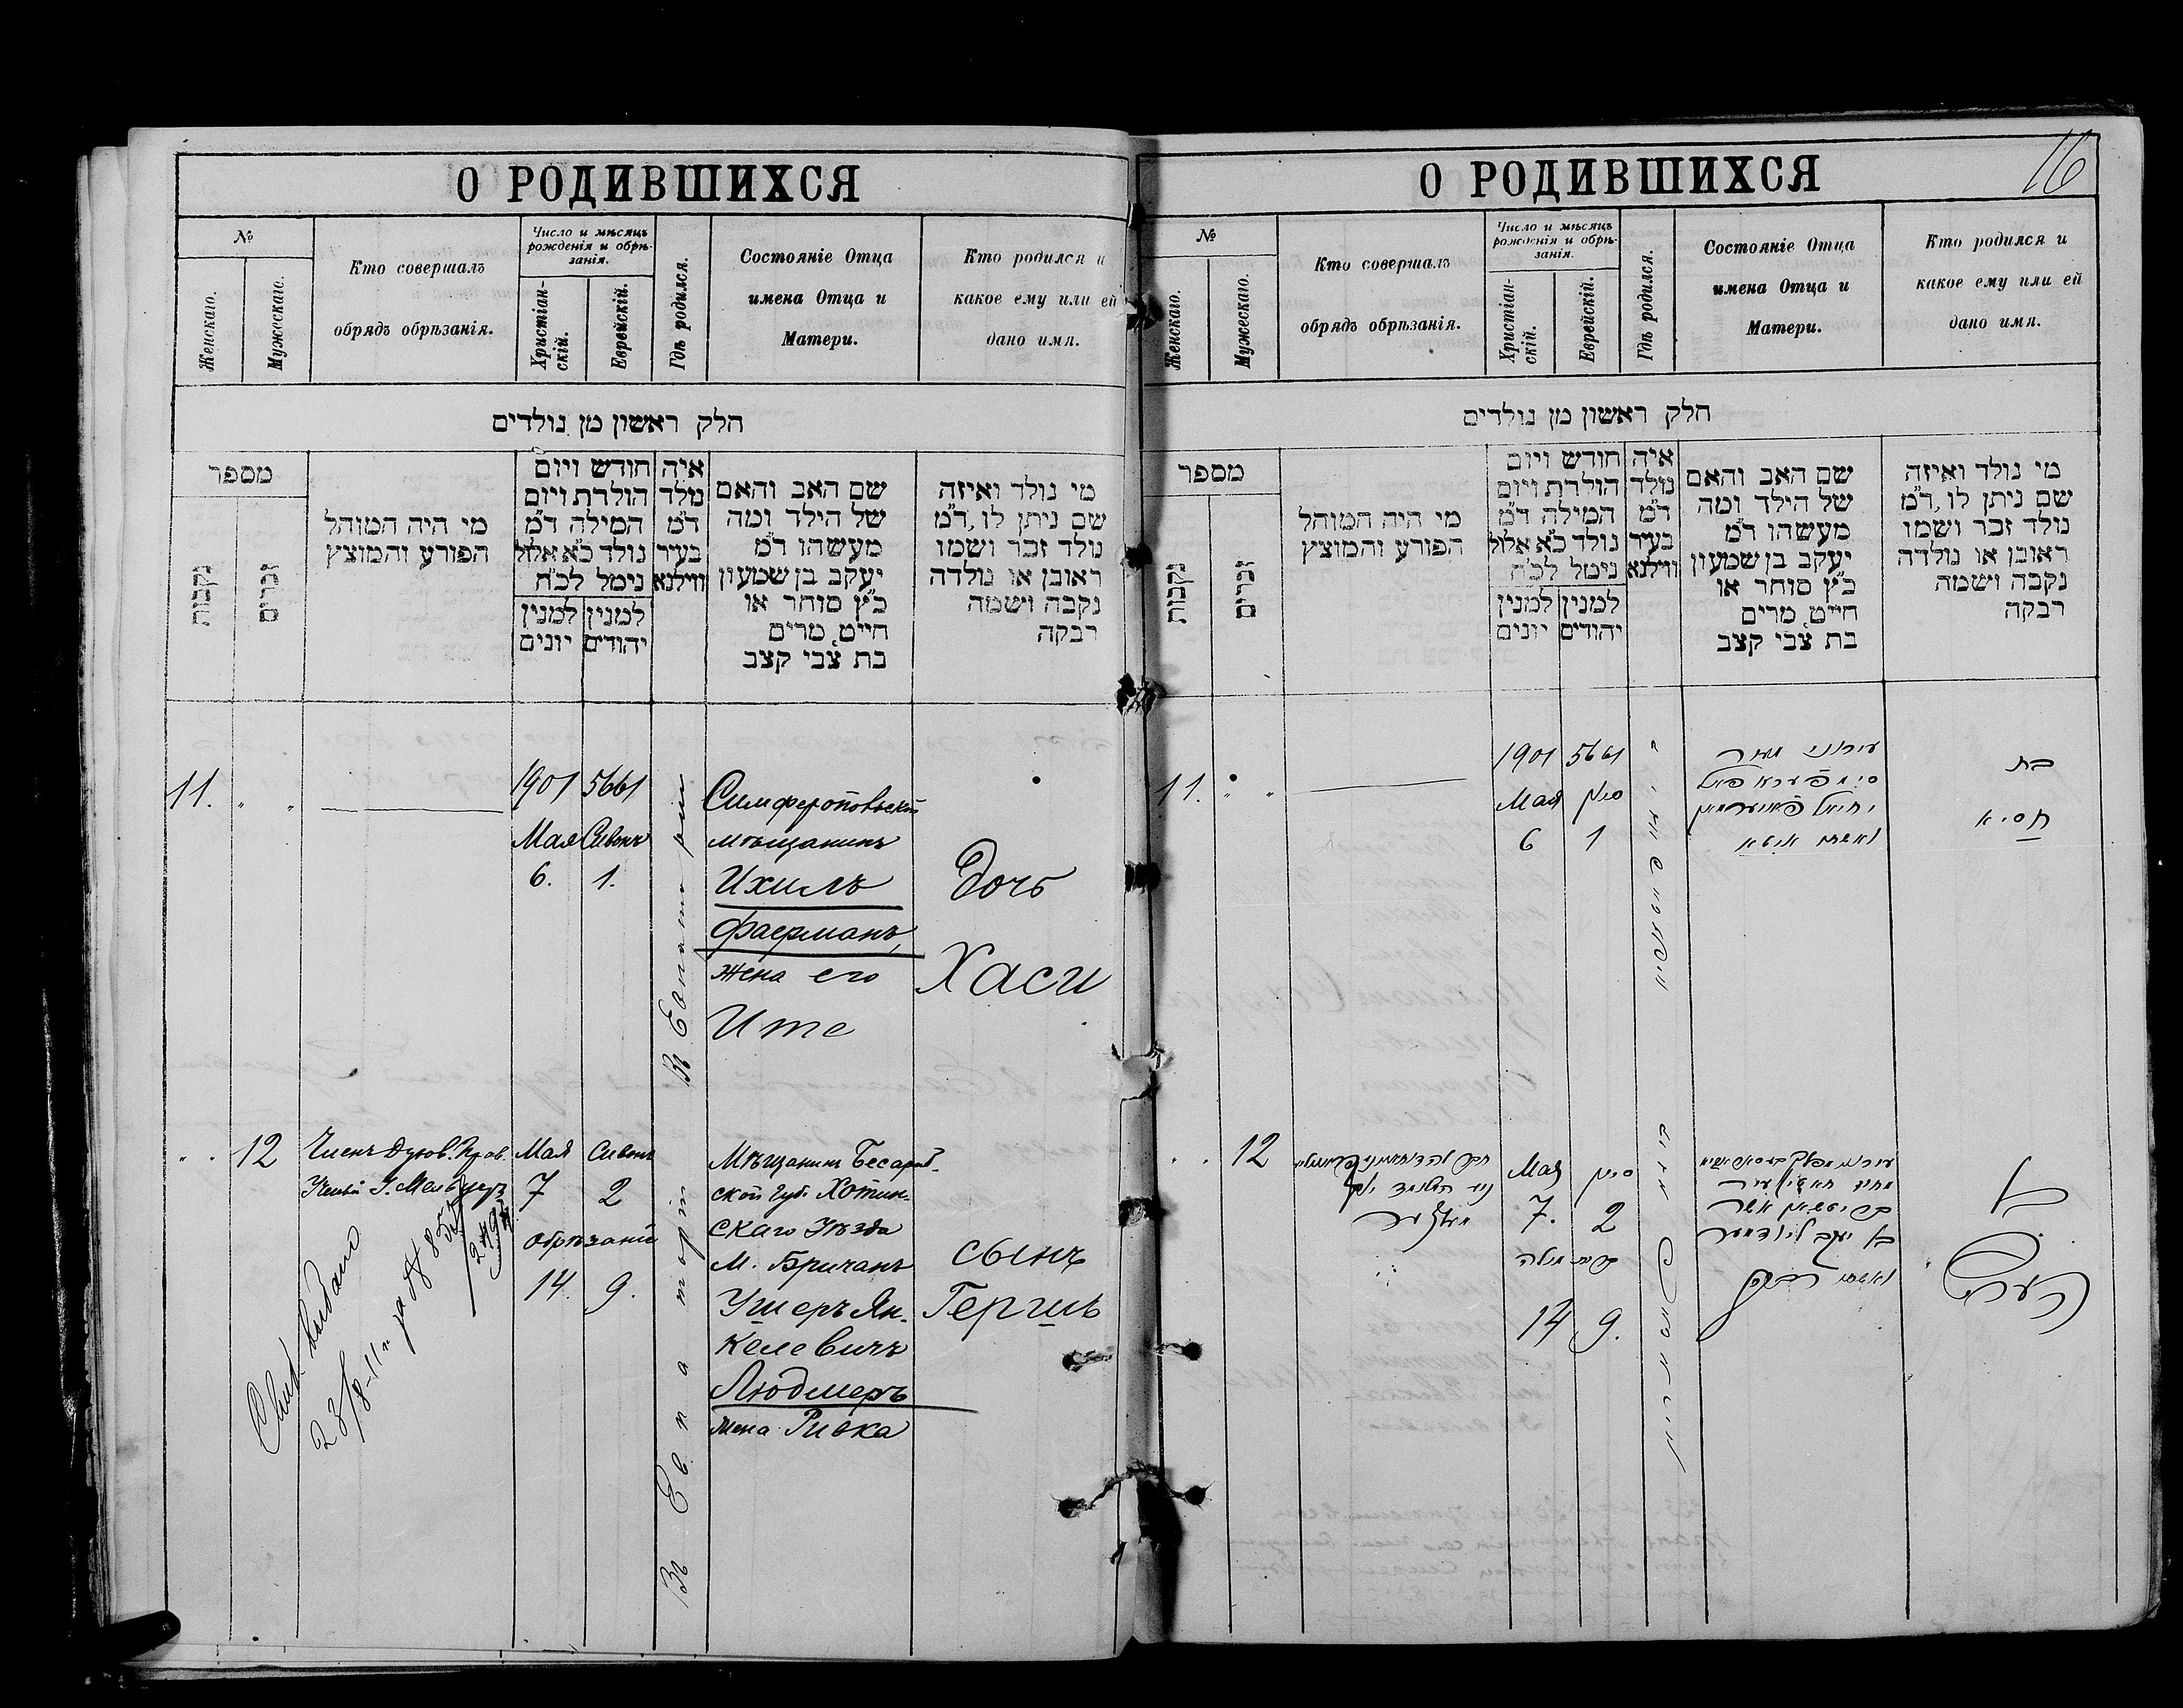 О РОДИВШИХСЯ
№
Женскаго.
Мужескаго.
Кто совершалъ
обрядъ обрѣзанія.
Число и мѣсяцъ
рожденія и обрѣ-
занія.
Христіан-
скій.
Еврейскій.
Гдѣ родился.
Состояніе Отца
имена Отца и
Матери.
Кто родился и
какое ему или ей
дано имя.
חלק ראשון מן נולדים
מספר
נקבות
זכרים
מי היה המוהל
הפורע והמוצץ
חודש ויום
הולדת ויום
המילה ד״מ
נולד כ״א אלול
נימל לכ״ח
למנין יונים
למנין יהודים
איה
נולד
ד״מ
בעיר
ווילנא
שם האב והאם
של הילד ומה
מעשהו ד״מ
יעקב בן שמעון
כ״ץ סוחר או
חייט, מרים
בת צבי קצב
מי נולד ואיזה
שם ניתן לו, ד״מ
נולד זכר ושמו
ראובן או נולדה
נקבה ושמה
רבקה
11. " "
1901 5661
Мая Сивонъ
6. 1.
Въ Евпаторіи
Симферопольскій
мѣщанинъ
Ихилъ
Фаерманъ,
жена его
Ите
Дочь
Хаси
" . 12
Членъ Духов. Прав.
Мая Сивонъ
7 2
обрѣзаніе
14. 9.
Въ Евпаторіи
Мѣщанинъ Бесараб-
ской губ. Хотин-
скаго Уѣзда
М. Бричанъ
Ушеръ Ян-
келевичъ
Людмеръ
жена Ривка
сынъ
Гершъ
Свид. выдано
23/8-11 г. за № 853
16
О РОДИВШИХСЯ
№
Женскаго.
Мужескаго.
Кто совершалъ
обрядъ обрѣзанія.
Число и мѣсяцъ
рожденія и обрѣ-
занія.
Христіан-
скій.
Еврейскій.
Гдѣ родился.
Состояніе Отца
имена Отца и
Матери.
Кто родился и
какое ему или ей
дано имя.
חלק ראשון מן נולדים
מספר
נקבות
זכרים
מי היה המוהל
הפורע והמוצץ
חודש ויום
הולדת ויום
המילה ד״מ
נולד כ״א אלול
נימל לכ״ח
למנין יונים
למנין יהודים
איה
נולד
ד״מ
בעיר
ווילנא
שם האב והאם
של הילד ומה
מעשהו ד״מ
יעקב בן שמעון
כ״ץ סוחר או
חייט, מרים
בת צבי קצב
מי נולד ואיזה
שם ניתן לו, ד״מ
נולד זכר ושמו
ראובן או נולדה
נקבה ושמה
רבקה
11. " "
1901 5661
Мая סיון
6 1
יחיאל פאיערמאן
ואשתו איטא
בת
חסיא
" . 12
Мая סיון
7. 2
ברית מילה
14 9.
אשר
בן יעקב ליודמער
ואשתו רבקה
בן
הירש